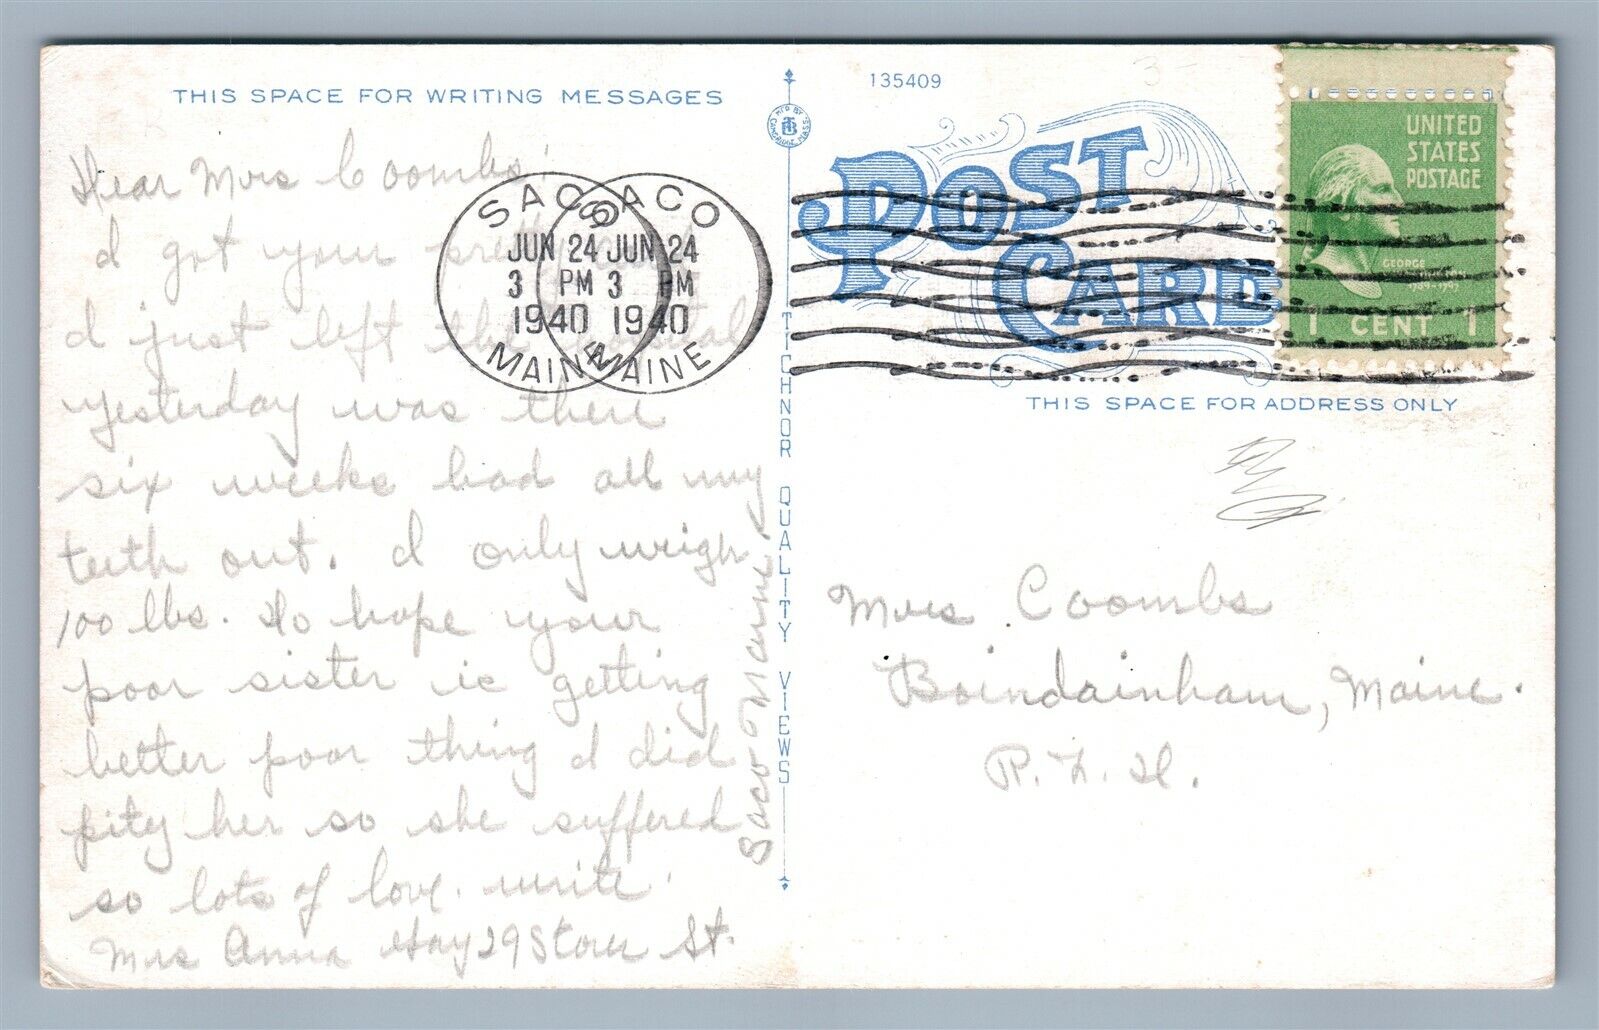 THIS SPACE FOR WRITING MESSAGES
Dear Mrs Coombs'
I got your pretty
I just left the hospital
yesterday was there
six weeks had all my
teeth out. I only weigh
100 lbs. Do hope your
poor sister is getting
better poor thing I did
pity her so she suffered
so lots of love. write.
Mrs Anna Hay 29 Storer St.
Saco Maine
SACO
JUN 24
3 PM
1940
MAINE
SACO
JUN 24
3 PM
1940
MAINE
TICHNOR QUALITY VIEWS
MF'D BY
TB
CAMBRIDGE, MASS.
135409
POST
CARD
UNITED
STATES
POSTAGE
GEORGE
1 CENT 1
THIS SPACE FOR ADDRESS ONLY
Mrs Coombs
Boindainham, Maine.
R. F. D.